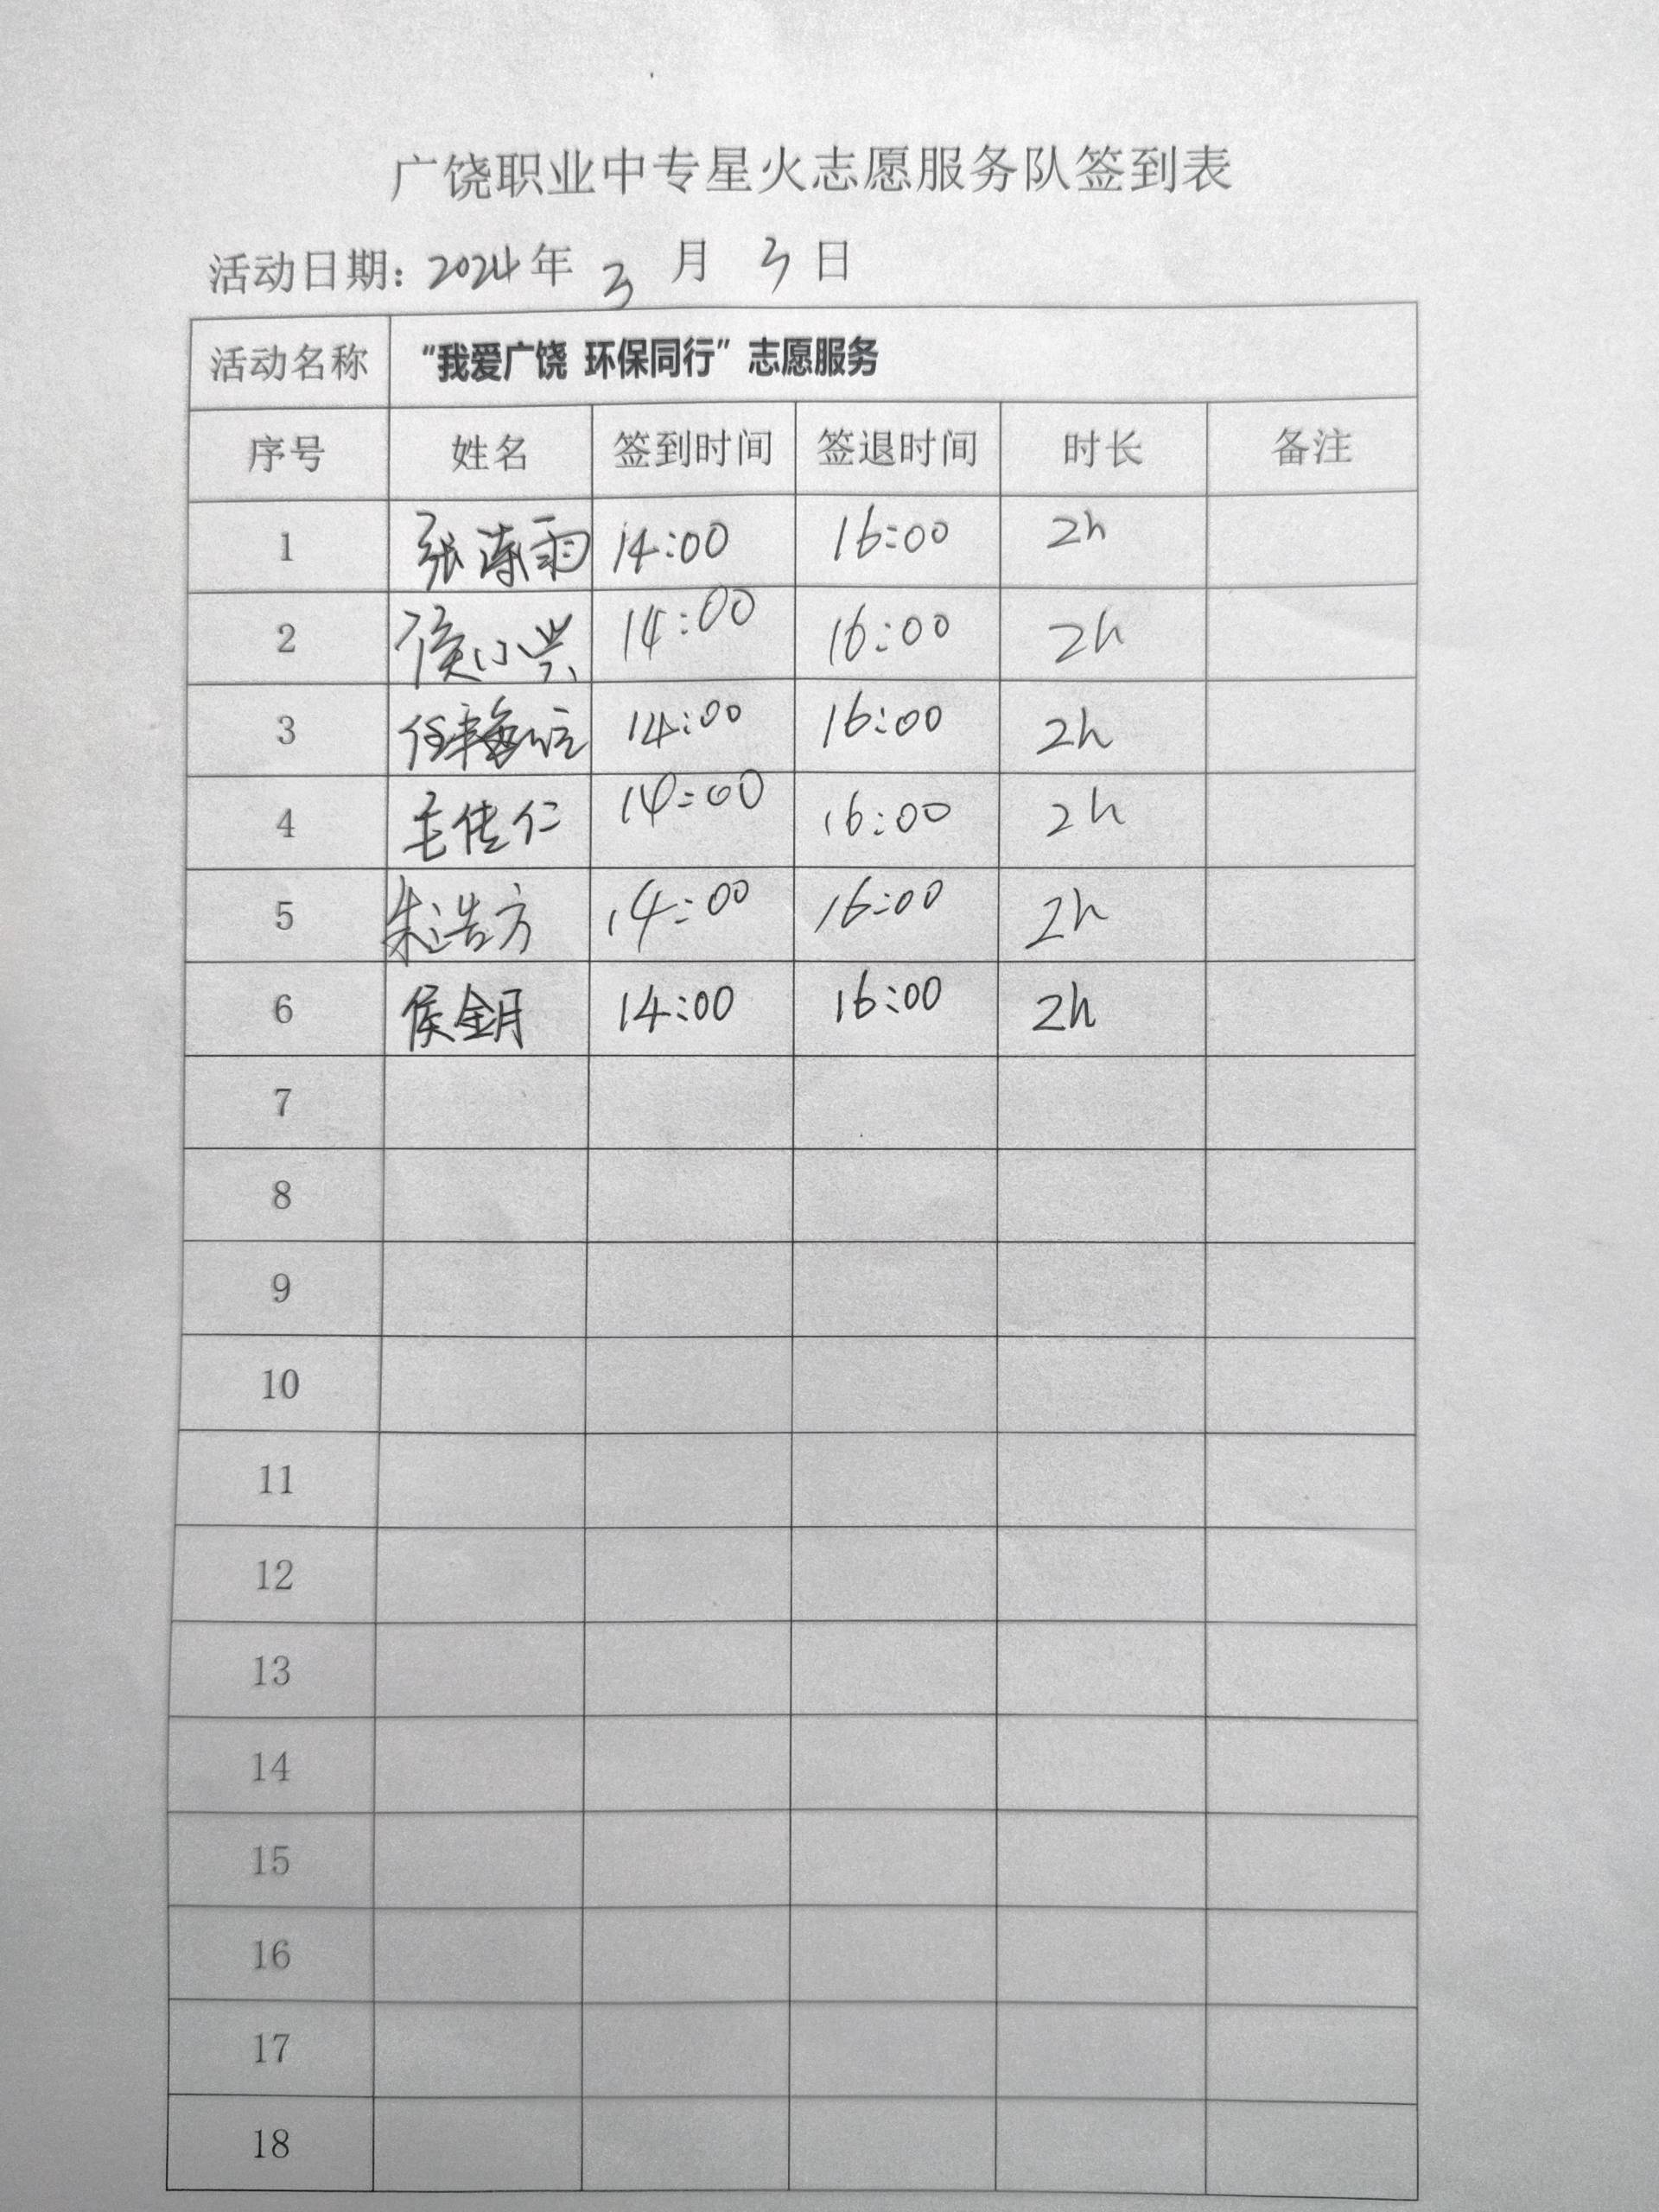 广饶职业中专星火志愿服务队签到表
活动日期：2024年 3 月 3 日
活动名称 “我爱广饶 环保同行”志愿服务
序号 姓名 签到时间 签退时间 时长 备注
1 张涛雨 14:00 16:00 2h
2 侯小兴 14:00 16:00 2h
3 任 14:00 16:00 2h
4 毛传仁 14:00 16:00 2h
5 朱浩方 14:00 16:00 2h
6 侯金月 14:00 16:00 2h
7
8
9
10
11
12
13
14
15
16
17
18